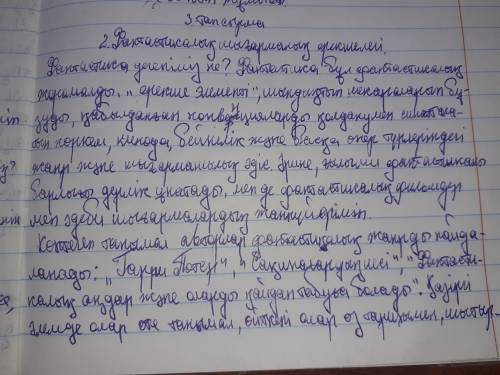 3 тапсырма
2. Фантастикалық шығарманың ерекшелігі.
Фантастика дегеніміз не? Фантастика, бұл фантастикалық
жорамалды, "ерекше элементі", шындықтың шекараларын бұ-
зуды, қабылданған конвенцияларды қолданумен сипатала-
тын көркем, кинода, бейнелік және басқа өнер түрлеріндегі
жанр және шығармашылық әдіс. Әрине, ғылыми фантастиканы
барлығы дерлік ұнатады, мен де фантастикалық фильмдер
мен әдеби шығармалардың жанкүйерімін.
Көптеген танымал авторлар фантастикалық жанрды пайда-
ланады: "Гарри Поттер", "Сақиналар әміршісі", "Фантасти-
калық аңдар және оларды қайдан табуға болады". Қазіргі
әлемде олар өте танымал, өйткені олар өз тарихымен, шытыр-